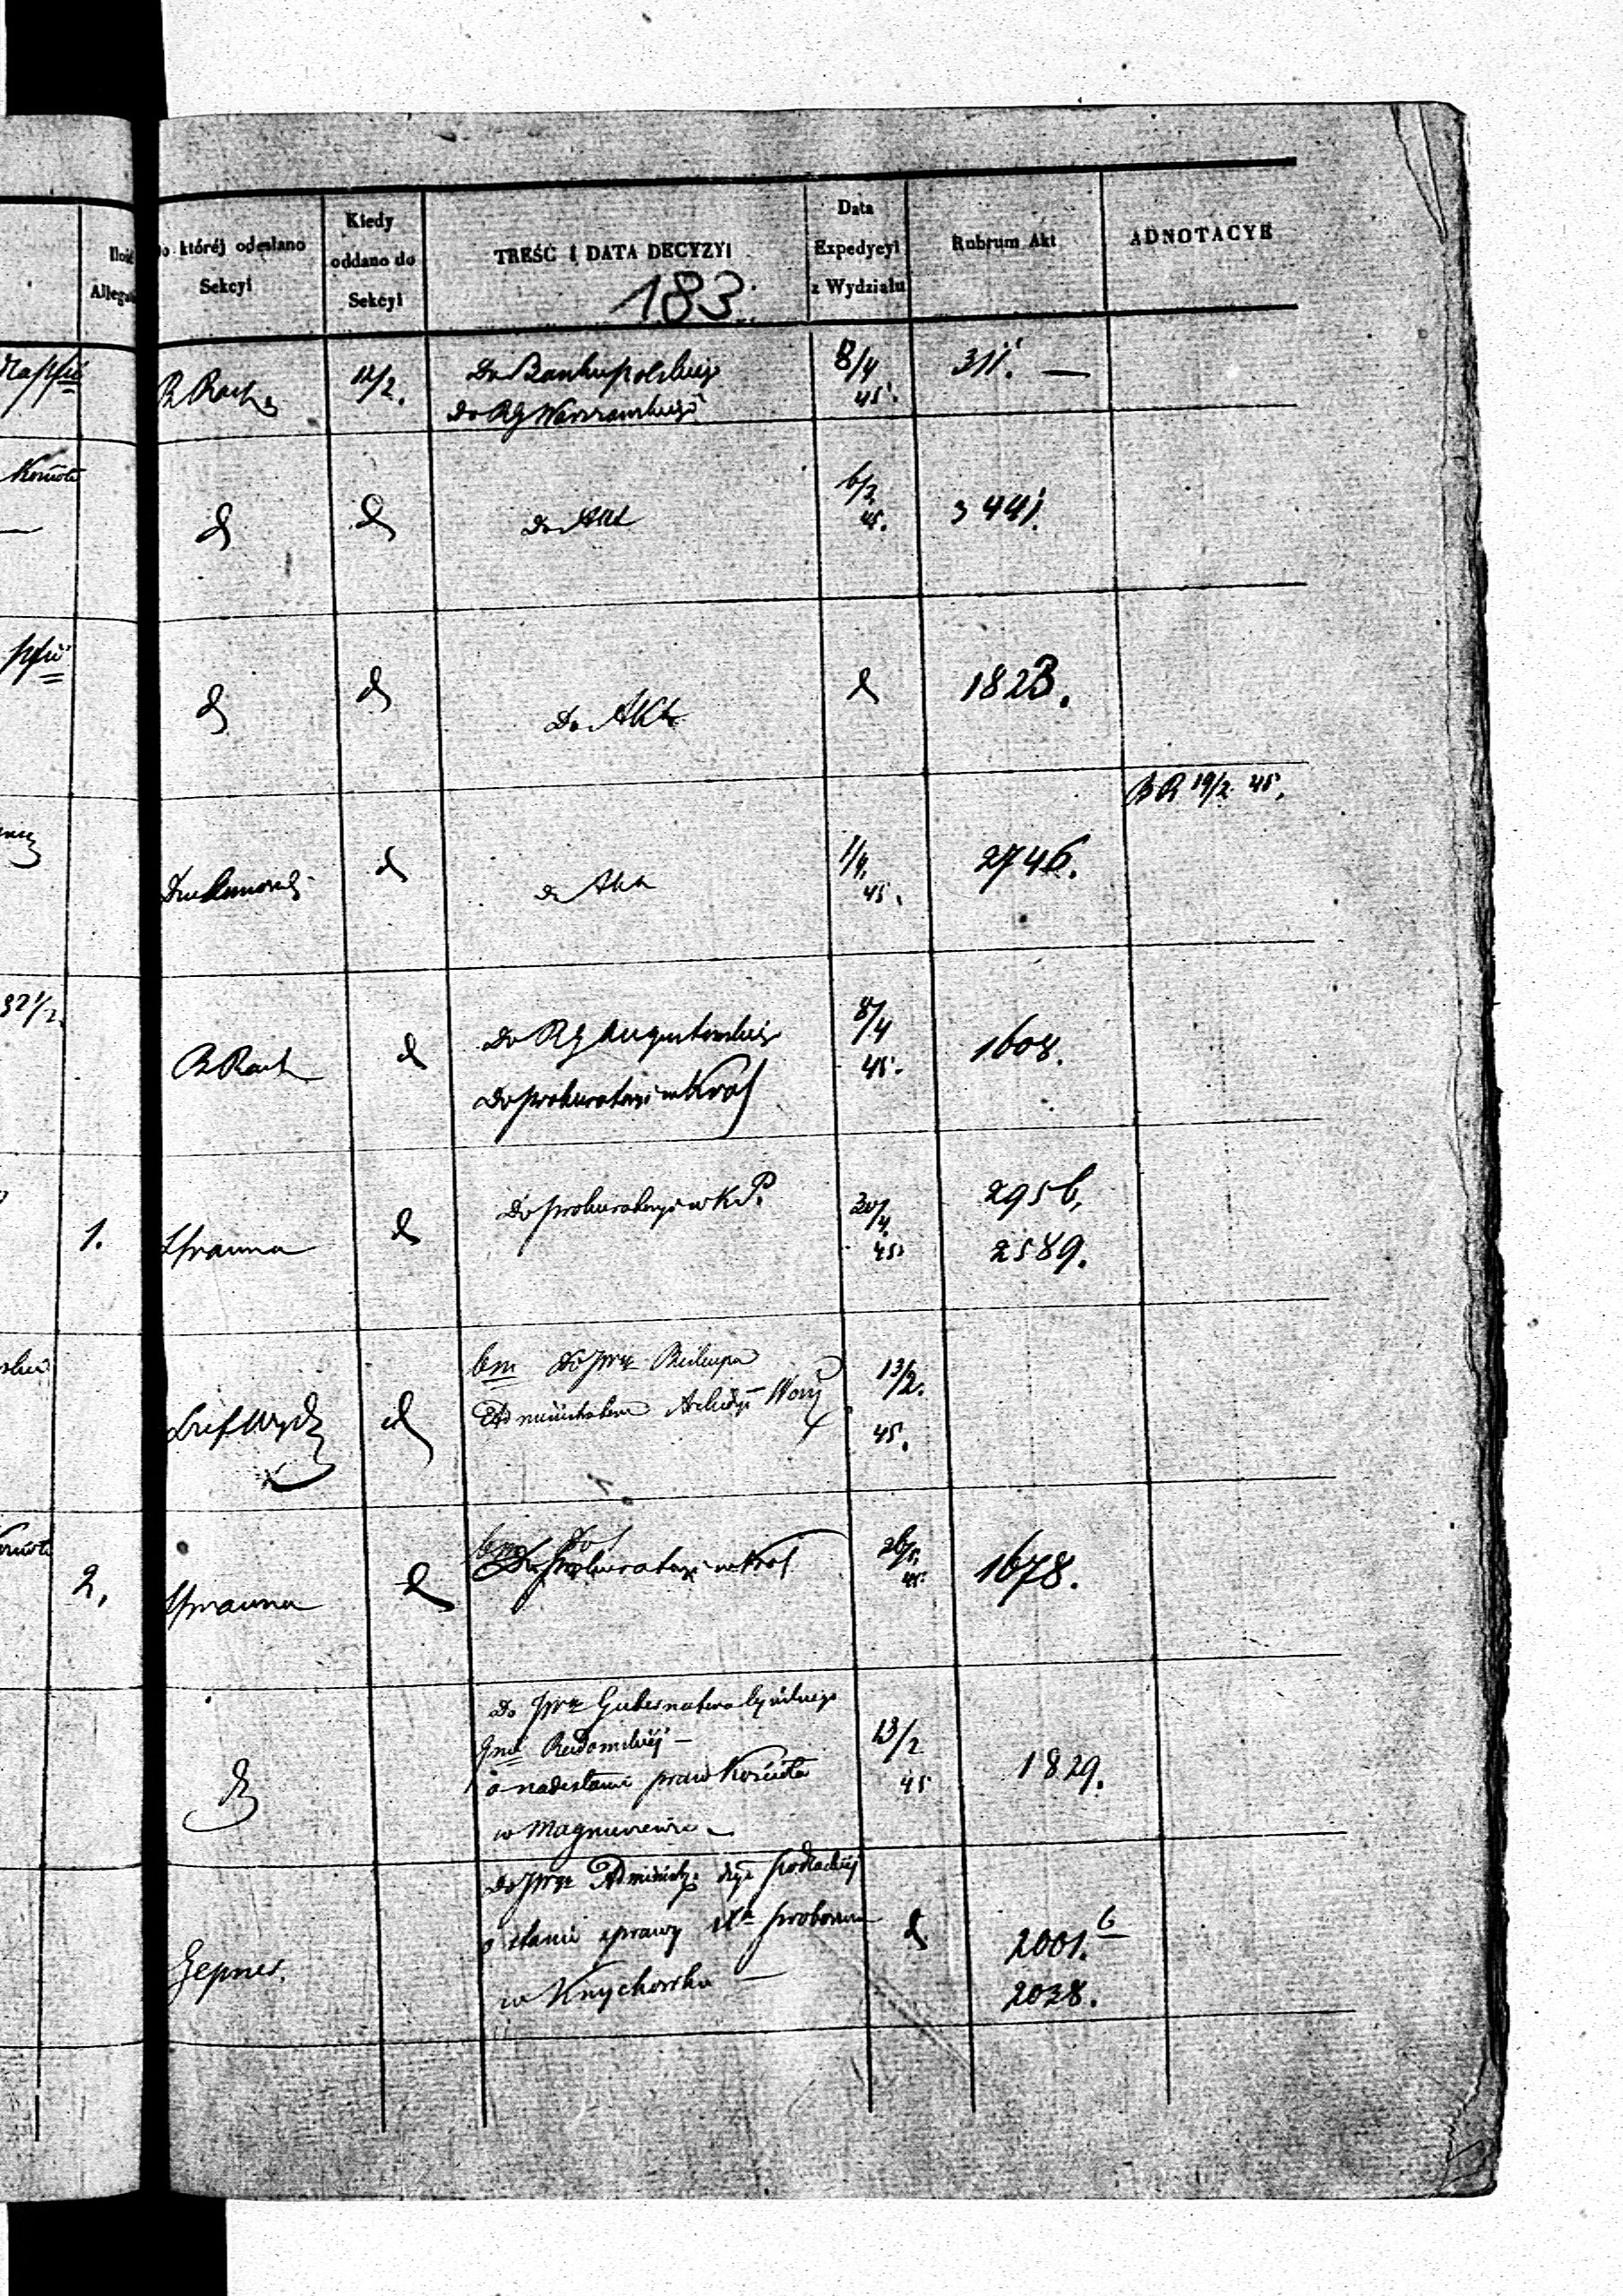 Ilość
Allegat
do któréj odesłano
Sekcyi
Kiedy
oddano do
Sekcyi
TREŚĆ I DATA DECYZYI
183
Data
Expedycyi
z Wydziału
Rubrum Akt
ADNOTACYE
B Rach
12/2.
Do Banku polskiego
Do RG Warszawskiego
8/4
45.
311. —
d
d
Do Akt
6/3
45.
3441.
d
d
Do Akt
d
1823.
BR 19/2 45.
d
do Akt
1/4
45.
2746.
32 1/2.
B Rach
d
Do RG Augustowskiego
Do prokuratoryi w Król
8/4
45.
1608.
1.
d
Do prokuratoryi w K P.
30/4
45.
2956.
2589.
Szef Wydz
d
bm do JW Biskupa
Administratora Archidy Warsz
13/2.
45.
2.
d
Do prokuratoryi w Król
45.
1678.
d
Do JW Gubernatora Cywilnego
Gub Radomskiej —
o nadesłanie praw Kościoła
w Magnuszewie
13/2
45
1829.
Gepner.
Do JW Administr. dyec podlaskiej
o stanie sprawy Xa proboszcza
w Knychowku —
d
2001. 6
2038.